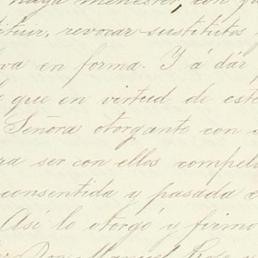 haya menester, con
tituir, revocar sustitutos
va en forma. Y á dar
lo que en virtud de este
Señora otorgante con
ra ser con ellos compel
consentida y pasada
Así lo otorgó y firmó
Don Manuel